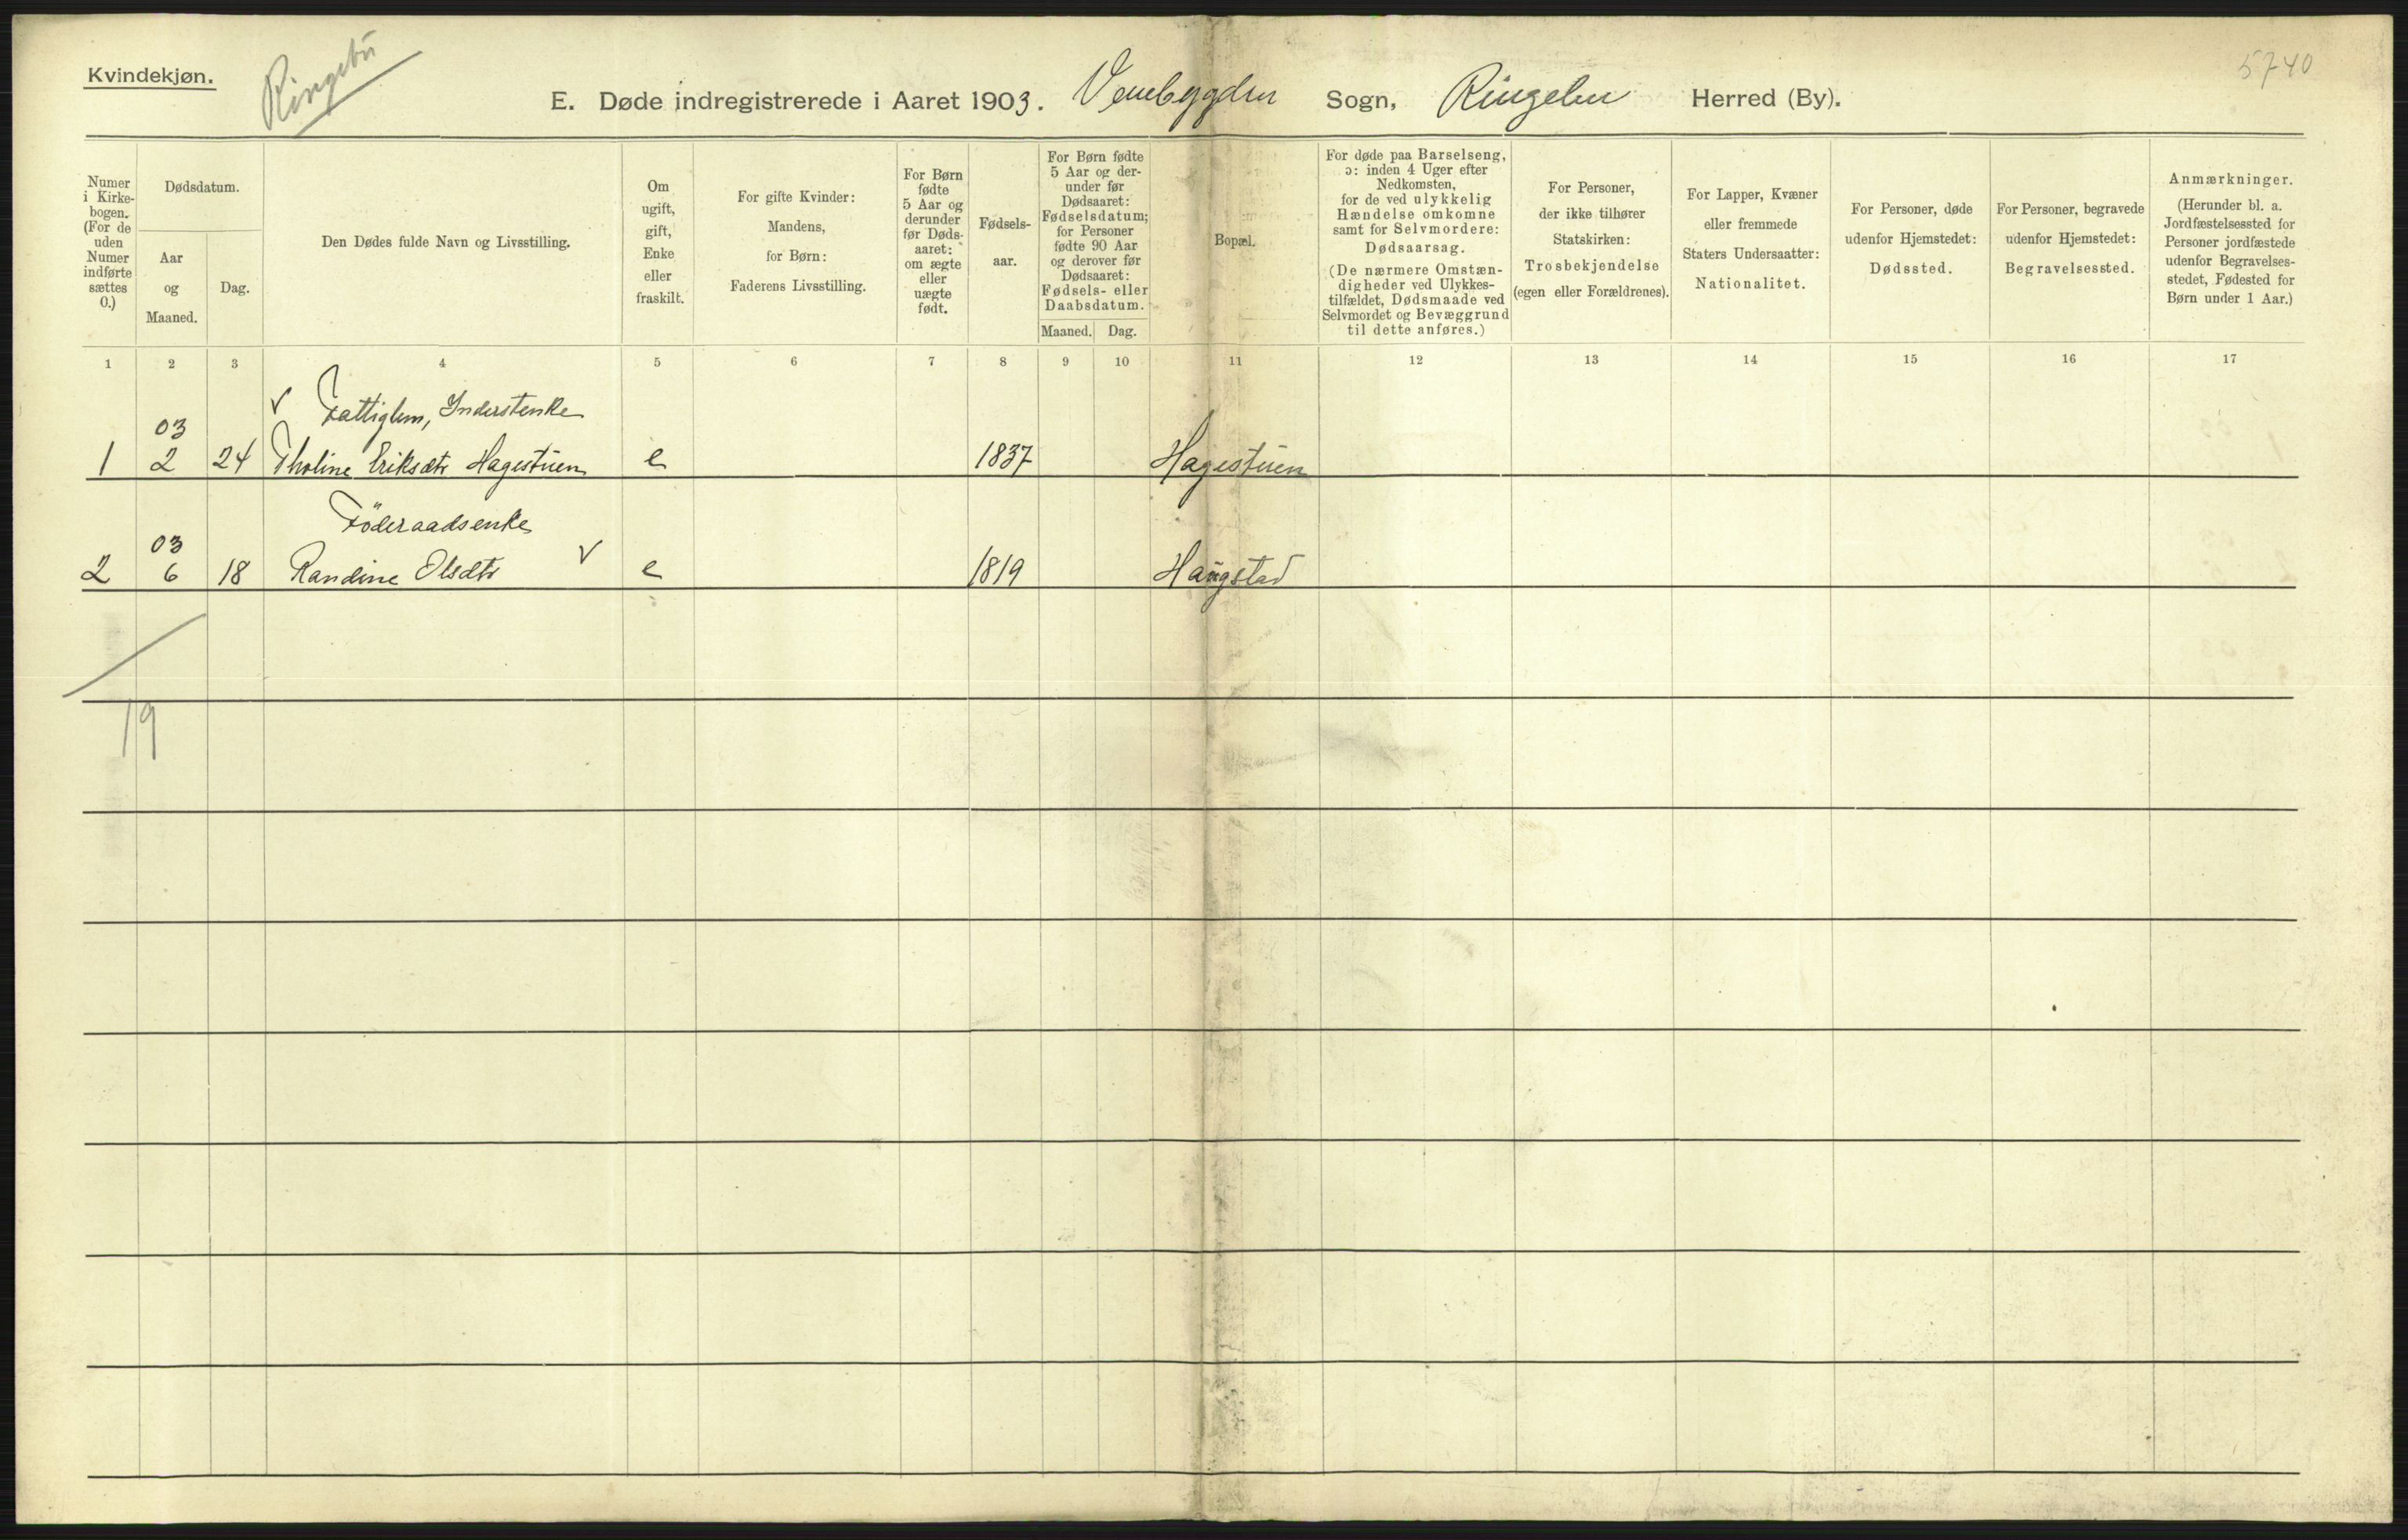 Kvindekjøn.
Ringebu
5740
E. Døde indregistrerede i Aaret 1903. Venebygden Sogn, Ringebu Herred (By).
Numer
i Kirke-
bogen.
(For de
uden
Numer
indførte
sættes
0.)
Dødsdatum.
Aar
og
Maaned.
Dag.
Den Dødes fulde Navn og Livsstilling.
Om
ugift,
gift,
Enke
eller
fraskilt.
For gifte Kvinder:
Mandens,
for Børn:
Faderens Livsstilling.
For Børn
fødte
5 Aar og
derunder
før Døds-
aaret:
om ægte
eller
uægte
født.
Fødsels-
aar.
For Børn fødte
5 Aar og der-
under før
Dødsaaret:
Fødselsdatum;
for Personer
fødte 90 Aar
og derover før
Dødsaaret:
Fødsels- eller
Daabsdatum.
Maaned. Dag.
Bopæl.
For døde paa Barselseng,
ɔ: inden 4 Uger efter
Nedkomsten,
for de ved ulykkelig
Hændelse omkomne
samt for Selvmordere:
Dødsaarsag.
(De nærmere Omstæn-
digheder ved Ulykkes-
tilfældet, Dødsmaade ved
Selvmordet og Bevæggrund
til dette anføres.)
For Personer,
der ikke tilhører
Statskirken:
Trosbekjendelse
(egen eller Forældrenes).
For Lapper, Kvæner
eller fremmede
Staters Undersaatter:
Nationalitet.
For Personer, døde
udenfor Hjemstedet:
Dødssted.
For Personer, begravede
udenfor Hjemstedet:
Begravelsessted.
Anmærkninger.
(Herunder bl. a.
Jordfæstelsessted for
Personer jordfæstede
udenfor Begravelses-
stedet, Fødested for
Børn under 1 Aar.)
1 2 3 4 5 6 7 8 9 10 11 12 13 14 15 16 17
V Fattiglem, Inderstenke
03
1 2 24 Tholine Eriksdtr Hagestuen e 1837 Hagestuen
Föderaadsenke
03
2 6 18 Randine Olsdtr V e 1819 Haugstad
19